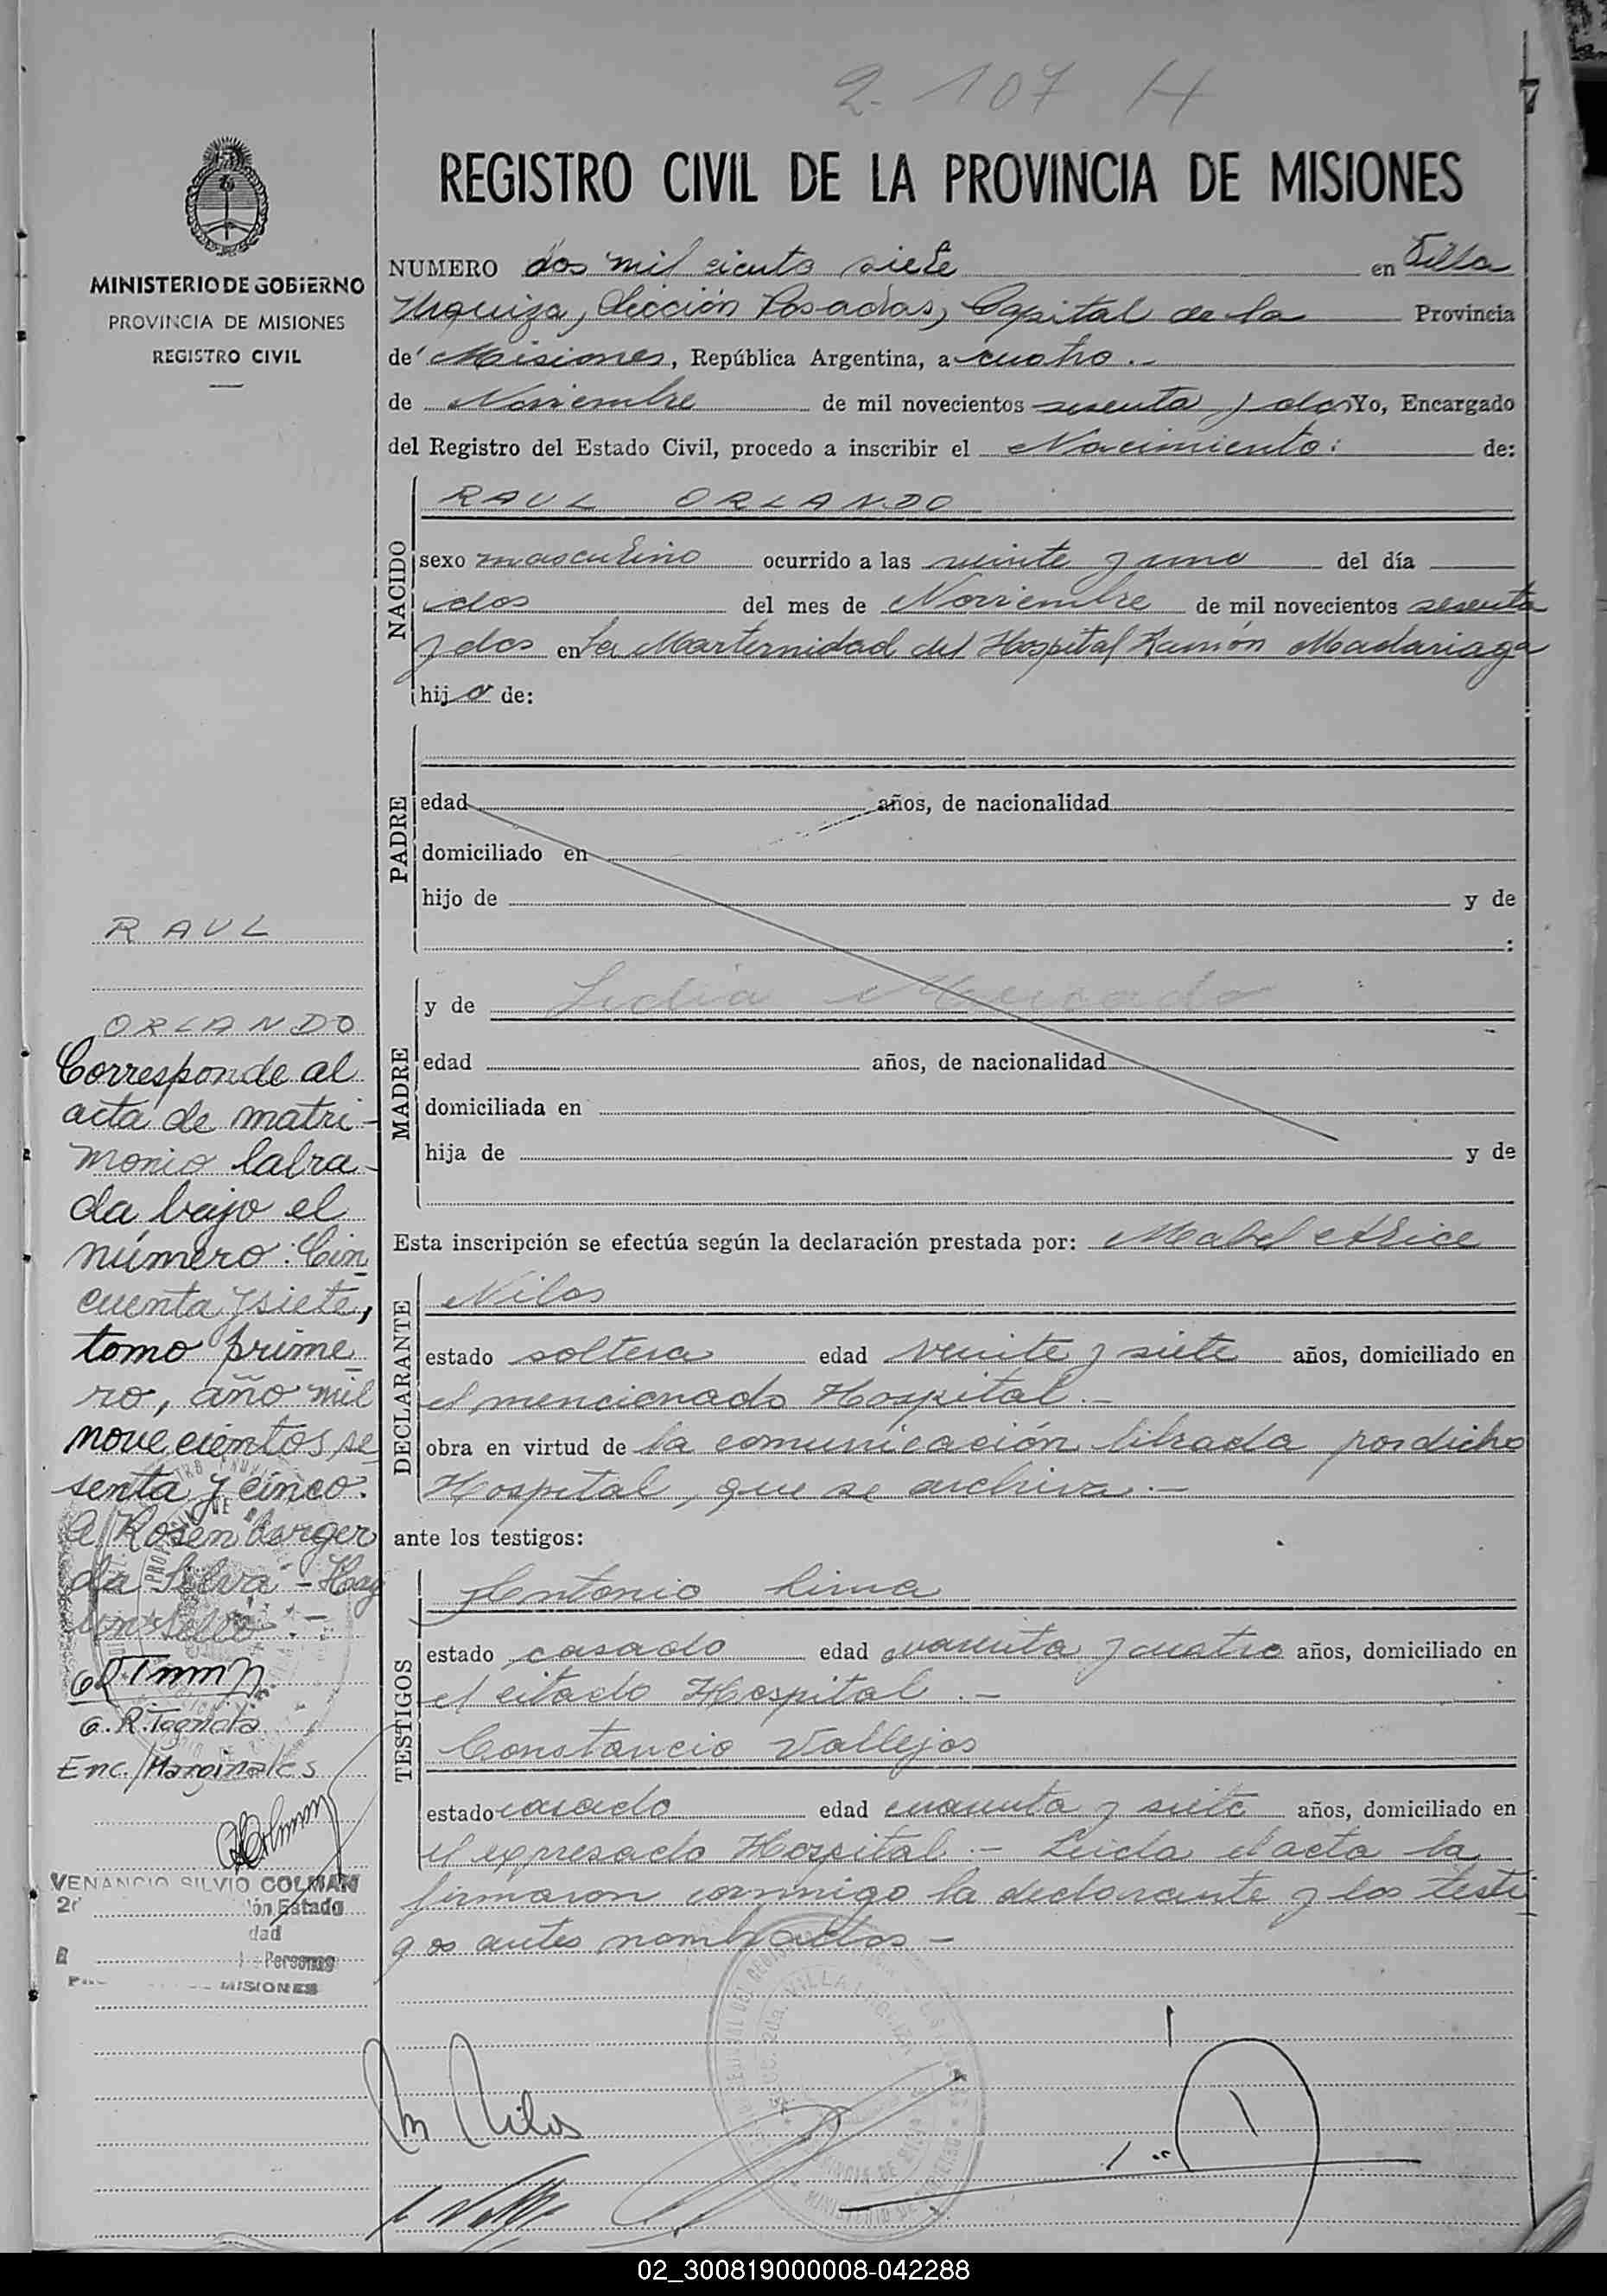 2. 107 H
REGISTRO CIVIL DE LA PROVINCIA DE MISIONES
MINISTERIO DE GOBIERNO
PROVINCIA DE MISIONES
REGISTRO CIVIL
NUMERO dos mil ciento siete en Villa
Urquiza, Sección Posadas, Capital de la Provincia
de Misiones, República Argentina, a cuatro.-
de Noviembre de mil novecientos sesenta y dos Yo, Encargado
del Registro del Estado Civil, procedo a inscribir el Nacimiento: de:
NACIDO
RAUL ORLANDO
sexo masculino ocurrido a las veinte y una del día
dos del mes de Noviembre de mil novecientos sesenta
y dos en La Marternidad del Hospital Ramón Madariaga
hijo de:
PADRE
edad años, de nacionalidad
domiciliado en
hijo de y de
:
MADRE
y de Lidia Mercado
edad años, de nacionalidad
domiciliada en
hija de y de
Esta inscripción se efectúa según la declaración prestada por: Mabel Alice
DECLARANTE
Nilos
estado soltera edad veinte y siete años, domiciliado en
el mencionado Hospital.-
obra en virtud de la comunicación librada por dicho
Hospital, que se archiva.-
ante los testigos:
TESTIGOS
Antonio Lima
estado casado edad cuarenta y cuatro años, domiciliado en
el citado Hospital.-
Constancio Vallejos
estado casado edad cuarenta y siete años, domiciliado en
el expresado Hospital.- Leida el acta la
firmaron conmigo la declarante y los testi
gos antes nombrados-
RAUL
ORLANDO
Corresponde al
acta de matri-
monio labra-
da bajo el
número: Cin
cuenta y siete,
tomo prime
ro, año mil
novecientos se
senta y cinco.
Rosenberger
da Silva -
Enc./Marginales
VENANCIO SILVIO COLMAN
ón Estado
dad
Personas
MISIONES
M Nilos
02_300819000008-042288